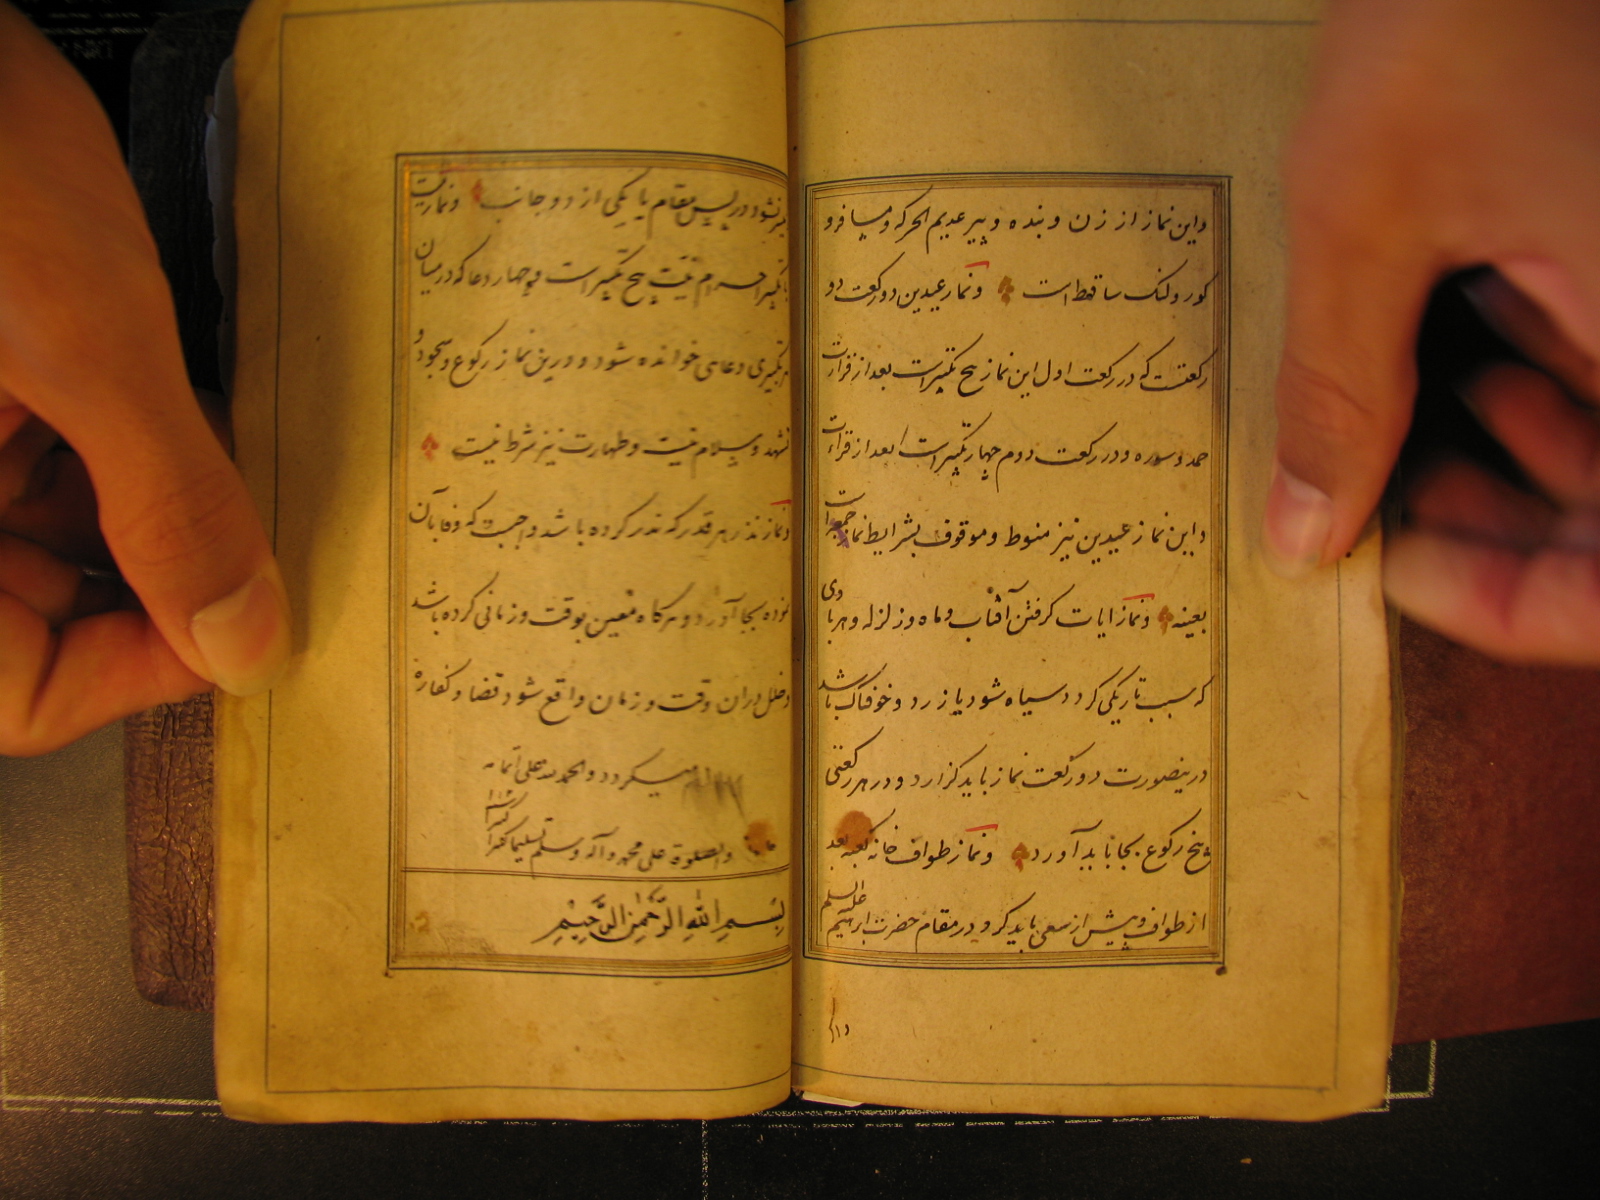 واین نماز از زن و بنده و پیر عدیم الحرکه و مسافر و
کور و لنک ساقط است و نماز عیدین دو رکعت دو
رکعتست که در رکعت اول این نماز پنج تکبیرست بعد از قراءت
حمد و سوره و در رکعت دوم چهار تکبیرست بعد از قراءت
و این نماز عیدین نیز منوط و موقوف بشرایط نماز جمعه است
بعینه و نماز ایات کرفتن آفتاب و ماه و زلزله و هر بادی
که سبب تاریکی کردد سیاه شود یا زرد و خوفناک باشد
درینصورت دو رکعت نماز باید کزارد و در هر رکعتی
پنج رکوع بجا باید آورد و نماز طواف خانه کعبه بعد
از طواف و پیش از سعی باید کرد و در مقام حضرت ابراهیم علیه السلم
نشود در پس مقام یا یکی از دو جانب و نماز میت
با تکبیر احرام نیت پنج تکبیرست و چهار دعا که در میان
هر تکبیری دعای خوانده شود و درین نماز رکوع و سجود و
تشهد و سلام نیست و طهارت نیز شرط نیست
و نماز نذر هر قدر که نذر کرده باشد واجبست که وفا بآن
نموده بجا آورد و هرکاه معین بوقت و زمانی کرده باشد
و خلل دران وقت و زمان واقع شود قضا و کفاره
میکردد والحمد لله علی اتمامه
والصلوة علی محمد وآله وسلم تسلیما کثیرا
بسم الله الرحمن الرحیم